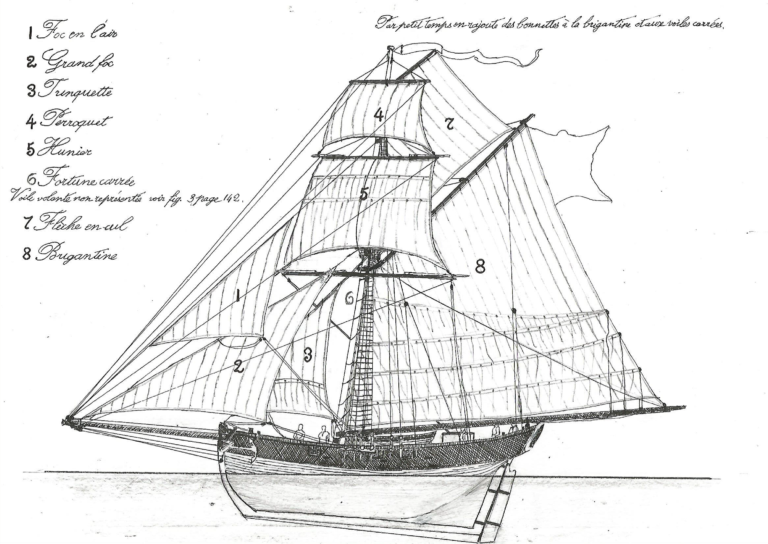 Par petit temps on rajoute des bonnettes à la brigantine et aux voiles carrées.
1 Foc en l'air
2 Grand foc
3 Trinquette
4 Perroquet
5 Hunier
6 Fortune carrée
Voile volante non représentée voir fig. 3 page 142.
7 Flèche en cul
8 Brigantine
4
7
5
8
1
6
3
2